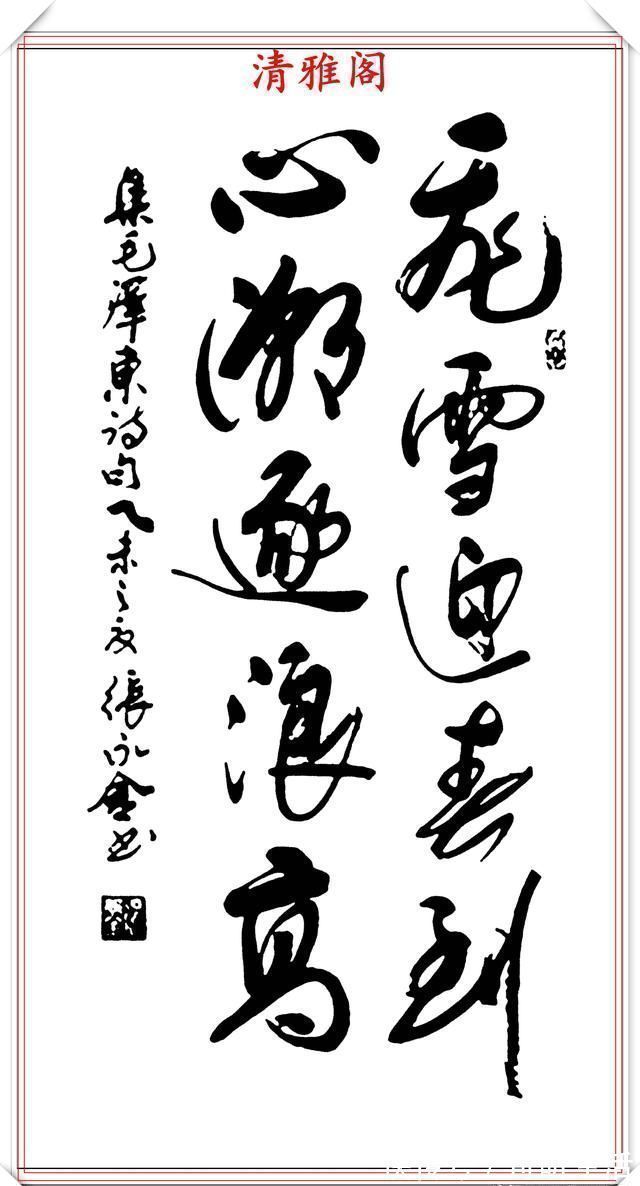 清雅阁
飛雪迎春到
心潮逐浪高
集毛澤東诗句乙未之夏張永金书